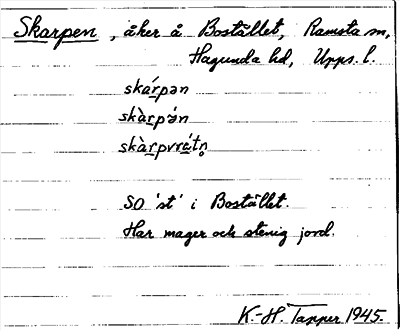 Skarpen, åker å Bostället, Ramsta sn,
Hagunda hd, Upps. l.
skárpən
skàrpə́n
skàrpvrétn̥
SO 'st' i Bostället.
Har mager och stenig jord.
K.-H. Tapper 1945.